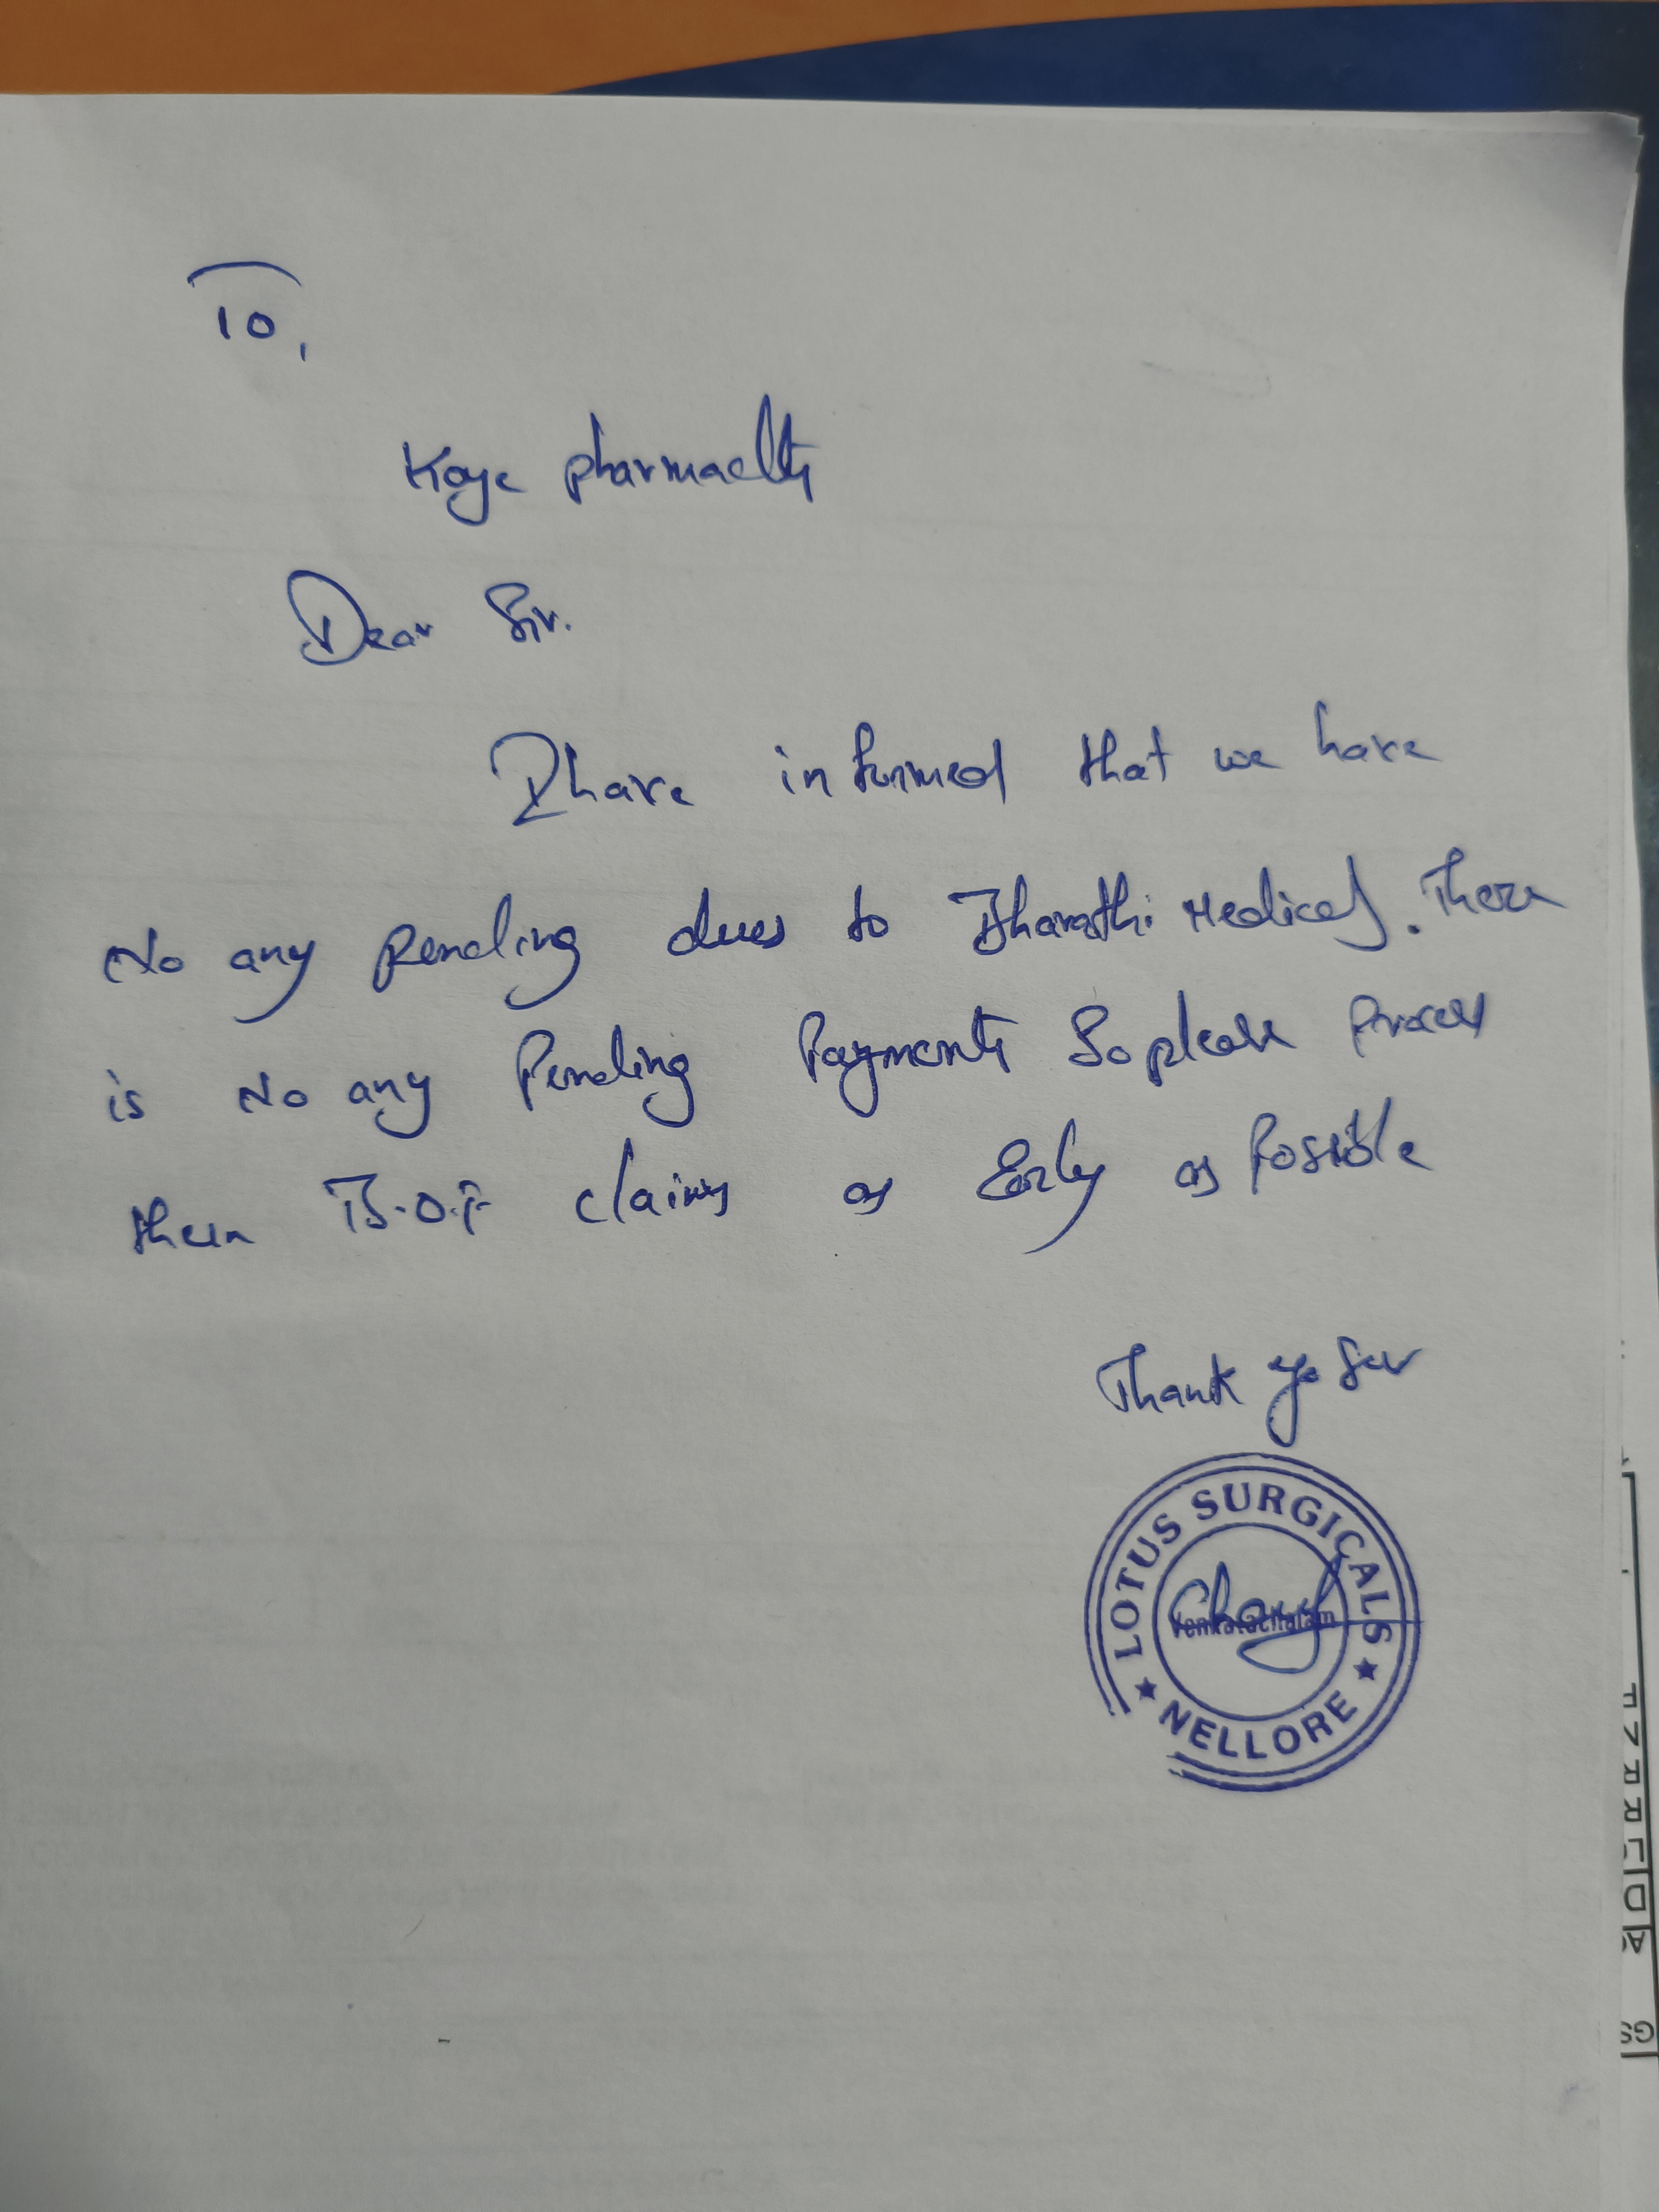 To,
Koye pharmacUty
Dear Sir.
I have informed that we have
No any pending dues to Bharathi Medicals. There
is No any Pending Payments So please Process
their B.O.F claims as Early as Possible
Thank yo Sir
LOTUS SURGICALS
Venkatachalam
★ NELLORE ★
GS